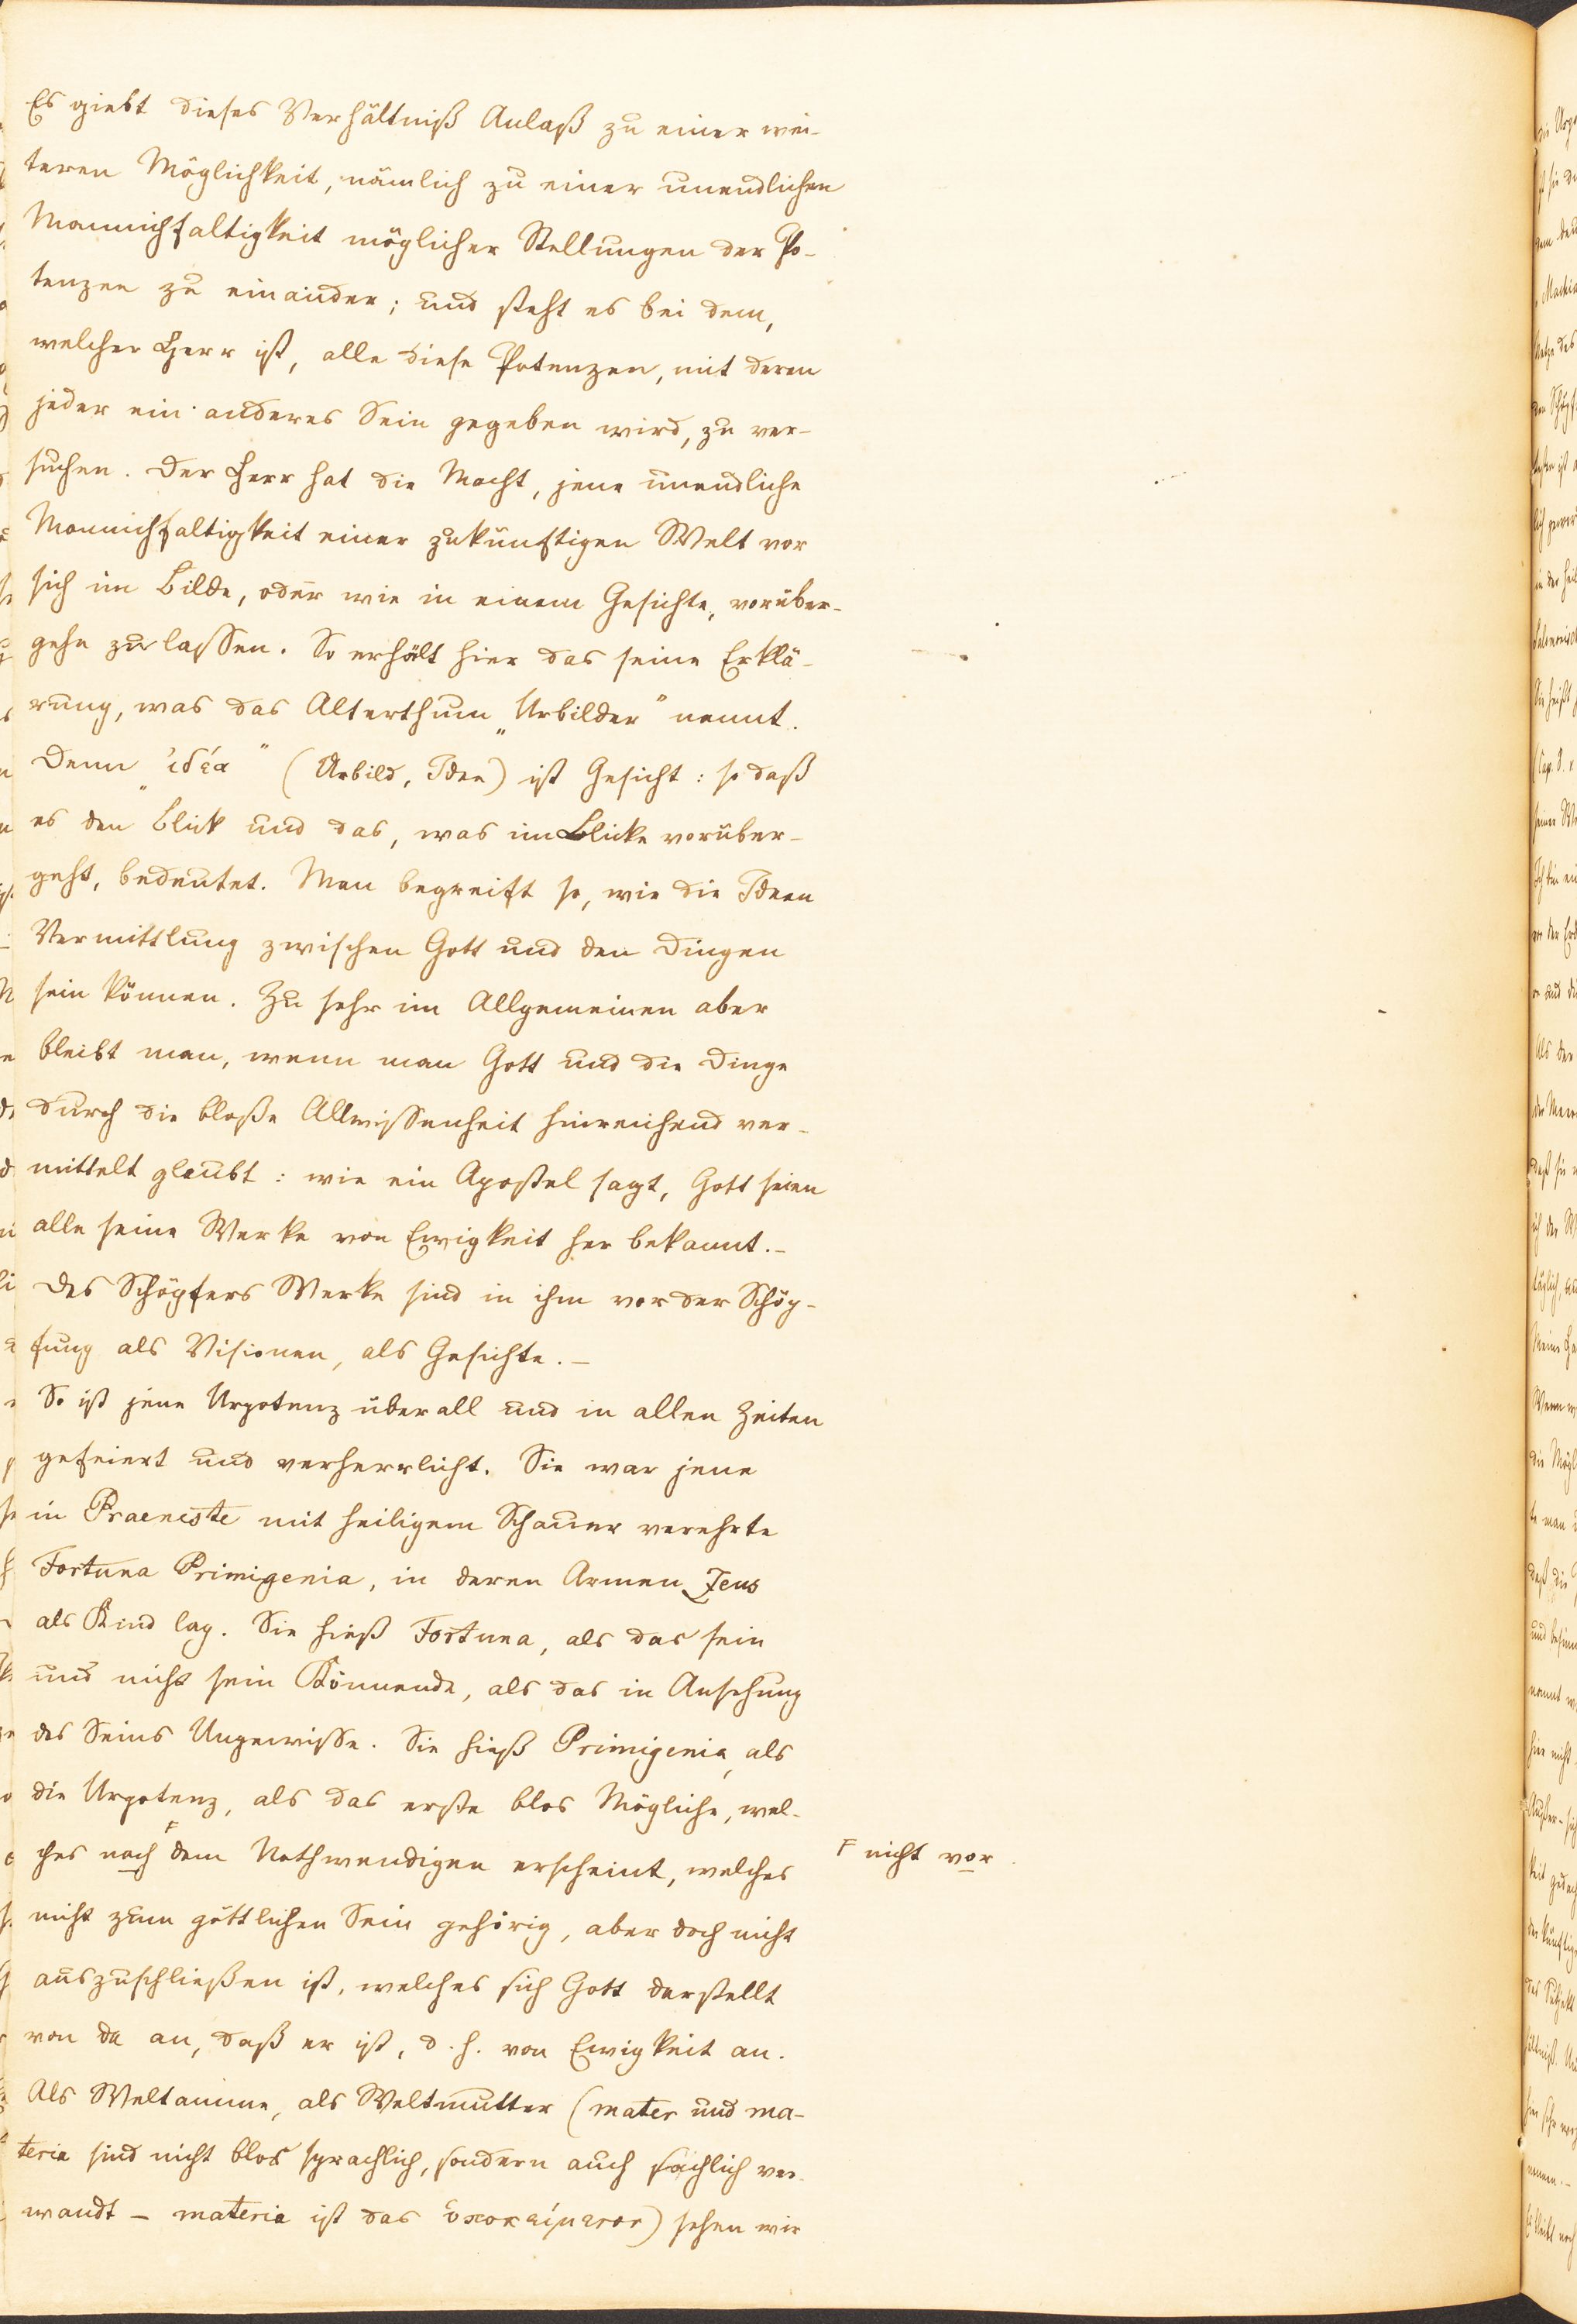 Es giebt dieses Verhältniß Anlaß zu einer wei-
teren Möglichkeit, nämlich zu einer unendlichen
Mannichfaltigkeit möglicher Stellungen der Po-
tenzen zu einander; und steht es bei dem,
welcher Herr ist, alle diese Potenzen, mit deren
jeder ein anderes Sein gegeben wird, zu ver-
suchen. Der Herr hat die Macht, jene unendliche
Mannichfaltigkeit einer zukünftigen Welt vor
sich im Bilde, oder wie in einem Gesichte, vorüber-
gehn zu lassen. So erhält hier das seine Erklä-
rung, was das Alterthum „Urbilder" nennt.
Denn „ἰδέα" (Urbild, Idee) ist Gesicht: so daß
es den Blick und das, was im Blicke vorüber-
geht, bedeutet. Man begreift so, wie die Ideen
Vermittlung zwischen Gott und den Dingen
sein können. Zu sehr im Allgemeinen aber
bleibt man, wenn man Gott und die Dinge
durch die bloße Allwissenheit hinreichend ver-
mittelt glaubt: wie ein Apostel sagt, Gott seien
alle seine Werke von Ewigkeit her bekannt.-
Des Schöpfers Werke sind in ihm vor der Schöp-
fung als Visionen, als Gesichte.-
So ist jene Urpotenz überall und in allen Zeiten
gefeiert und verherrlicht. Sie war jene
in Praeneste mit heiligem Schauer verehrte
Fortuna Primigenia, in deren Armen Zeus
als Kind lag. Sie hieß Fortuna, als das sein
und nicht sein Könnende, als das in Ansehung
des Seins Ungewisse. Sie hieß Primigenia, als
die Urpotenz, als das erste blos Mögliche, wel-
ches nach F dem Nothwendigen erscheint, welches
F nicht vor
nicht zum göttlichen Sein gehörig, aber doch nicht
auszuschließen ist, welches sich Gott darstellt
von da an, daß er ist, d. h. von Ewigkeit an.
Als Weltamme, als Weltmutter (mater und ma-
teria sind nicht blos sprachlich, sondern auch sachlich ver-
wandt - materia ist das ὑποκείμενον) sehen wir